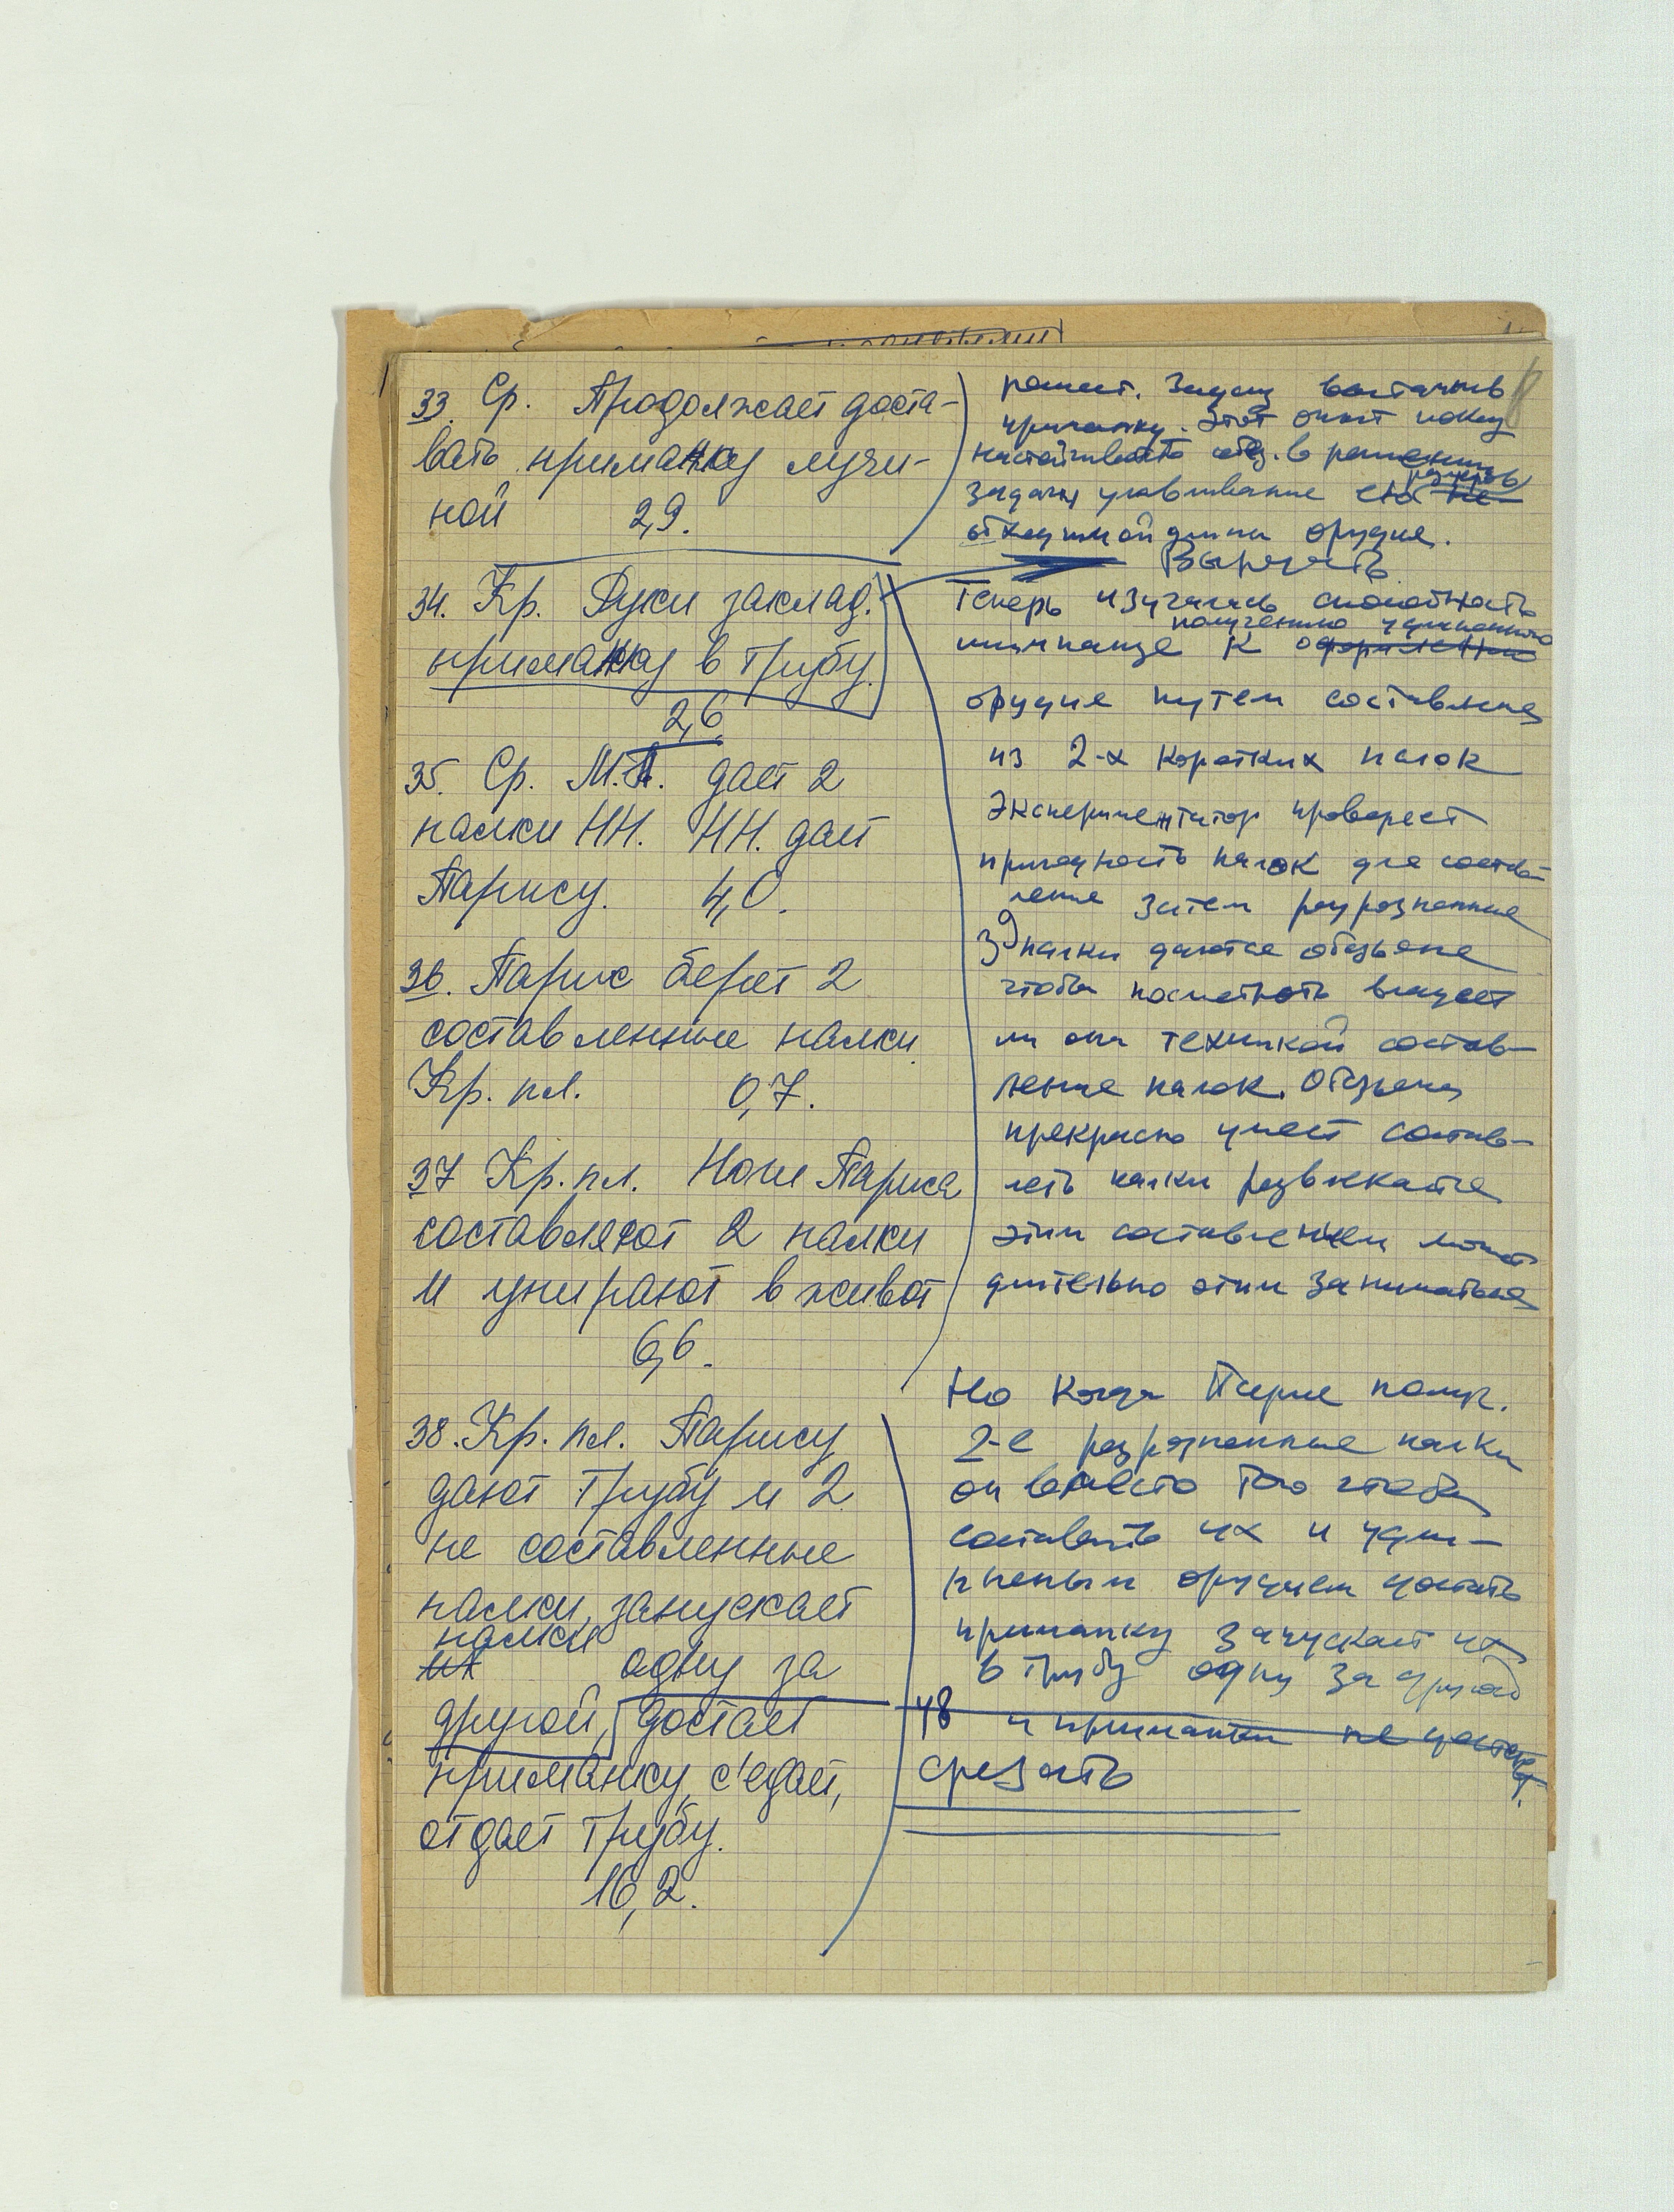 33. Ср. Продолжает доста-
вать приманку лучи-
ной 2,9.
34. Кр. Руки заклад.
приманку в трубу.
2,6
35. Ср. М.П. дает 2
палки НН. НН. дает
Парису. 4,0.
36. Парис берет 2
составленные палки
Кр. пл. 0,7.
37 Кр. пл. Ноги Париса
составляют 2 палки
и упирают в живот
6,6.
38. Кр. пл. Парису
дают трубу и 2
не составленные
палки, запускает
палки
их одну за
другой, достает
приманку, с'едает,
отдает трубу.
16,2.
решает. Задачу
приманку. Этот опыт
в решении
задачи улавливание
длины орудия.
Вырезать
Теперь изучалась способность
получению удлиненного
шимпанзе к оформлению
орудия путем составления
из 2-х коротких палок
Экспериментатор проверяет
пригодность палок для состав-
ления Затем разрозненные
палки даются обезьяне
чтобы посмотреть владеет
ли она техникой состав-
ления палок. Обезьяна
прекрасно умеет состав-
лять палки развлекается
этим составлением может
длительно этим заниматься
Но когда Парис получ.
2-е разрозненные палки
он вместо того чтобы
составить их и удли-
ненным орудием достать
приманку запускает их
в трубу одну за другой
48 и приманки не достает.
срезать